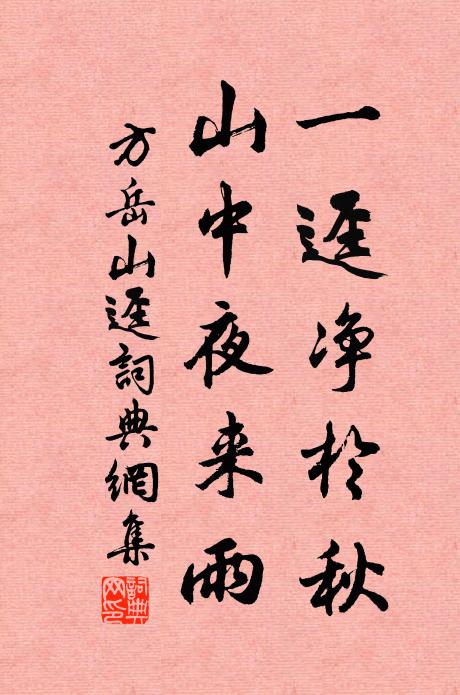 一逕净於秋
山中夜来雨
方岳山逕詞典網集
詞典網印